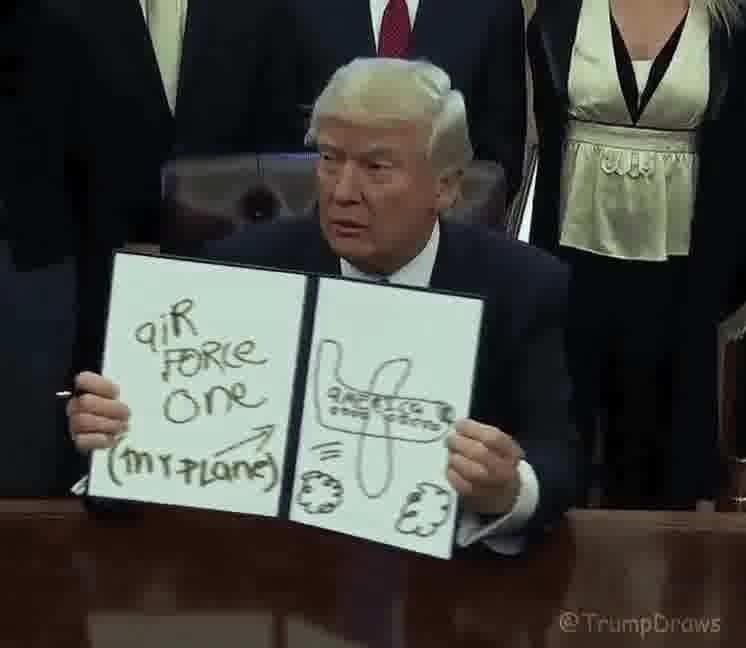 aiR
FORCe
one
(mY PLane)
aMERICa
@TrumpDraws